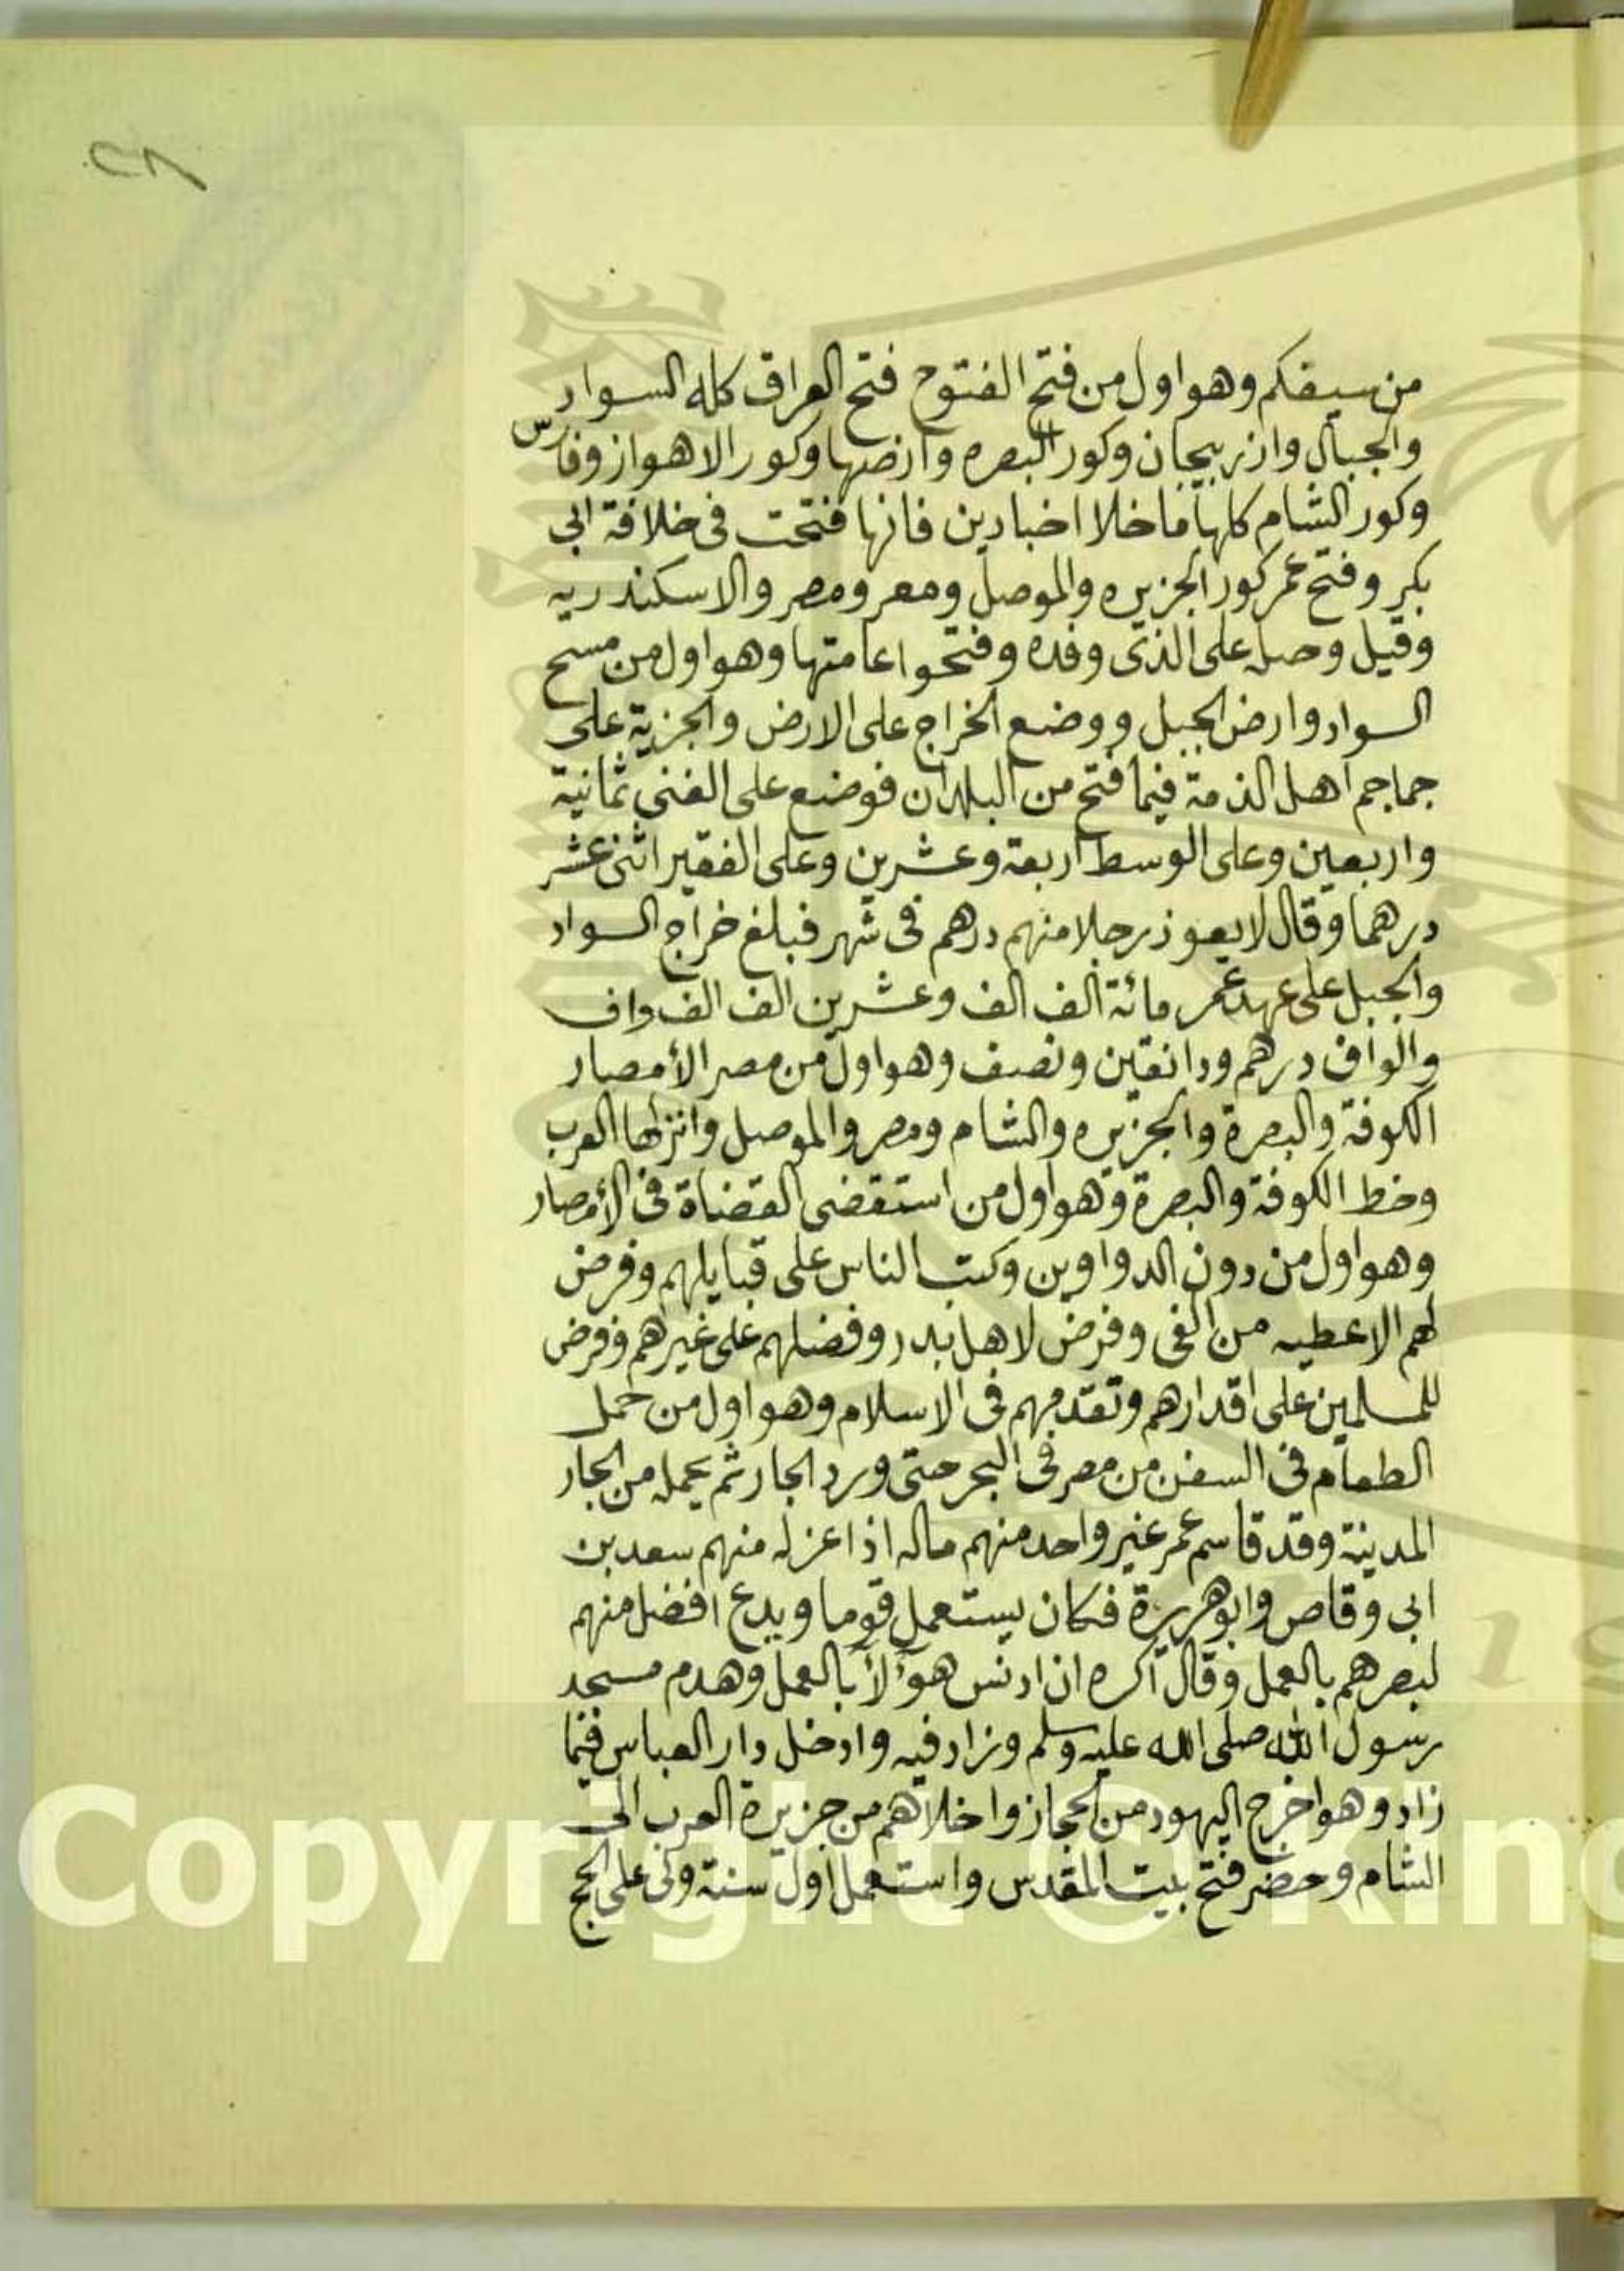 ٢٨
من سيفكم وهو اول من فتح الفتوح فتح العراق كله السواد
والجبال واذربيجان وكور البصره وارضها وكور الاهواز وفارس
وكور الشام كلها ما خلا اخبادين فانها فتحت فى خلافة ابى
بكر وفتح عمر كور الجزيره والموصل ومعر ومصر والاسكندريه
وقيل وصله على الذى وفده وفتحوا عامتها وهو اول من مسح
السواد وارض الجبل ووضع الخراج على الارض والجزية على
جماجم اهل الذمة فيما فتح من البلدان فوضع على الغنى ثمانية
واربعين وعلى الوسط اربعة وعشرين وعلى الفقير اثنى عشر
درهما وقال لا يعوذ رجلا منهم درهم فى شهر فبلغ خراج السواد
والجبل على عهد عمر مائة الف الف وعشرين الف الف واف
والواف درهم ودانقين ونصف وهو اول من مصر الأمصار
الكوفة والبصرة والجزيره والشام ومصر والموصل وانزلها العرب
وخط الكوفة والبصرة وهو اول من استقضى القضاة فى الأمصار
وهو اول من دون الدواوين وكتب الناس على قبايلهم وفرض
لهم الاعطيه من الفى وفرض لاهل بدر وفضلهم على غيرهم وفرض
للمسلمين على اقدارهم وتقدمهم فى الاسلام وهو اول من حمل
الطعام فى السفن من مصر فى البحر حتى ورد الجار ثم يحمله من الجار
المدينة وقد قاسم عمر غير واحد منهم ماله اذا عزله منهم سعد بن
ابى وقاص وابو هريرة فكان يستعمل قوما ويدع افضل منهم
لبصرهم بالعمل وقال اكره ان ادنس هوٓلآ بالعمل وهدم مسجد
رسول الله صلى الله عليه وسلم وزاد فيه وادخل دار العباس فيما
زاد وهو اخرج اليهود من الحجاز واخلاهم من جزيرة العرب الى
الشام وحضر فتح بيت المقدس واستعمل اول سنة ولى على الحج
Copyright © King